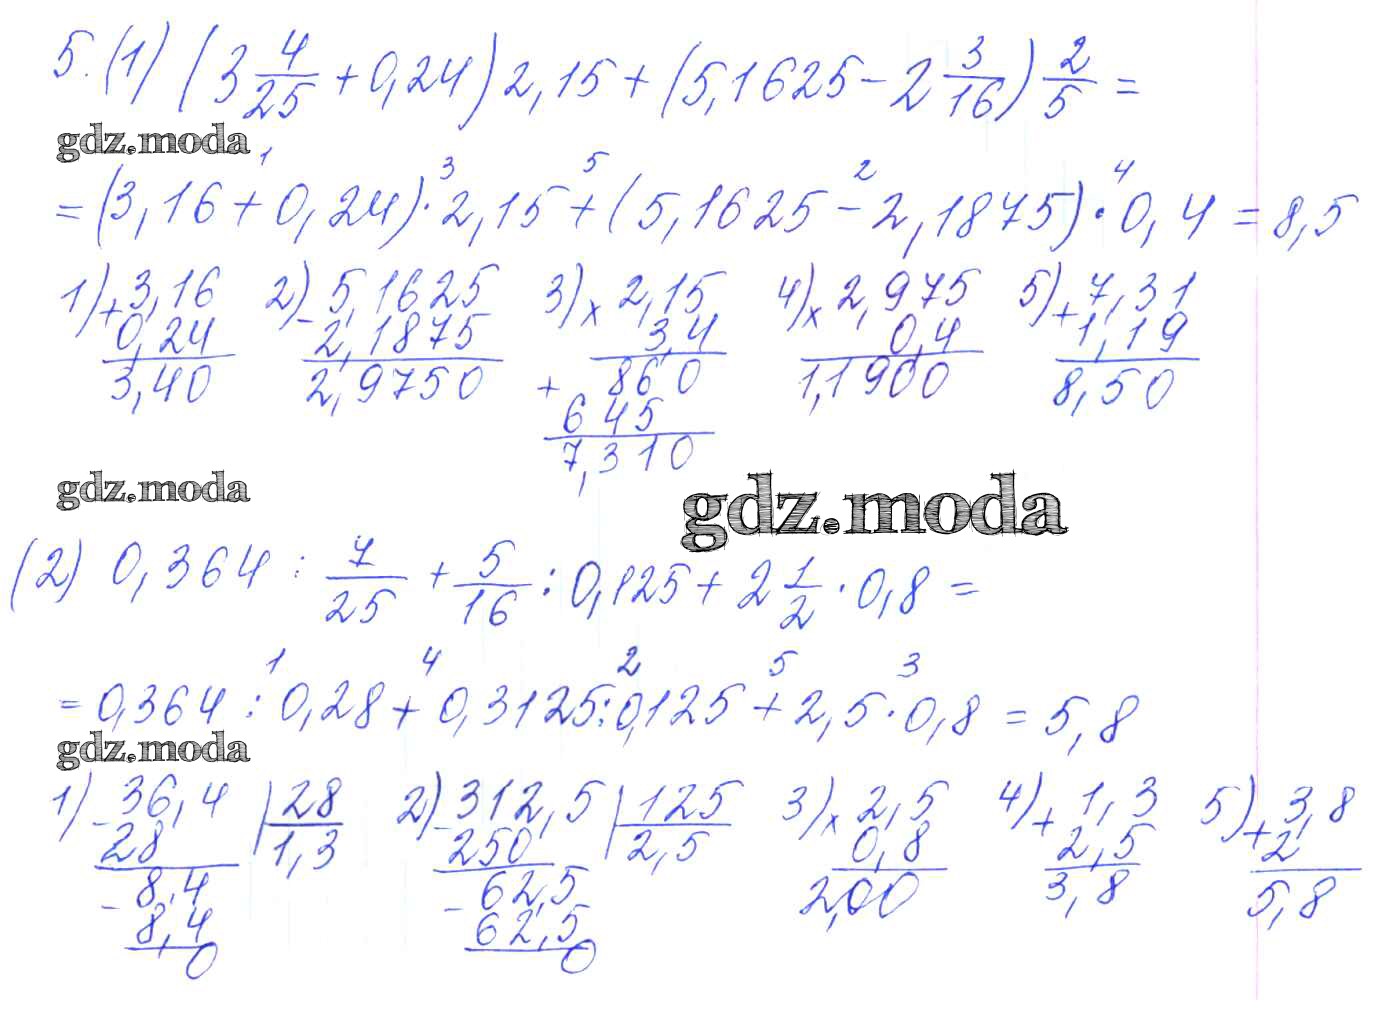 5. (1) (3 4/25 + 0,24) 2,15 + (5,1625 - 2 3/16) 2/5 =
gdz.moda
1 3 5 2 4
= (3,16 + 0,24) · 2,15 + (5,1625 - 2,1875) · 0,4 = 8,5
1) + 3,16 2) - 5,1625 3) x 2,15 4) x 2,975 5) + 7,31
0,24 2,1875 3,4 0,4 1,19
3,40 2,9750 + 860 1,1900 8,50
645
7,310
gdz.moda
gdz.moda
(2) 0,364 : 7/25 + 5/16 : 0,125 + 2 1/2 · 0,8 =
1 4 2 5 3
= 0,364 : 0,28 + 0,3125 : 0,125 + 2,5 · 0,8 = 5,8
gdz.moda
1) - 36,4 | 28 2) - 312,5 | 125 3) x 2,5 4) + 1,3 5) + 3,8
28 1,3 250 2,5 0,8 2,5 2
- 8,4 - 62,5 2,00 3,8 5,8
8,4 62,5
0 0